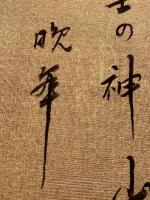 の神
晩年